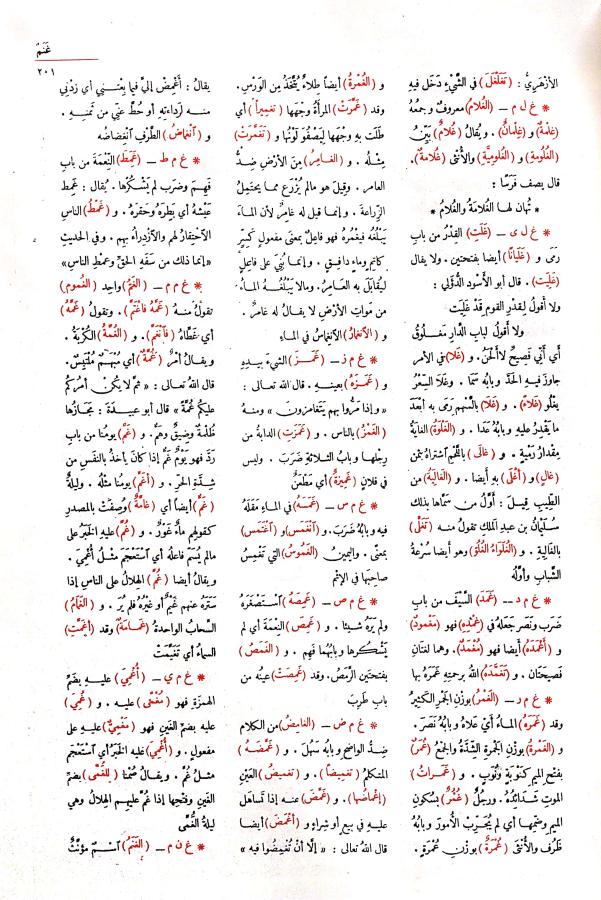 غَنَمٌ
٢٠١
الأزْهَرِيُّ : (تَغَلْغَلَ) في الشَّيْءِ دَخَلَ فيه
* غ ل م – (الغُلامُ) معروفٌ وجمعُهُ
(غِلْمَةٌ) و (غِلْمَانٌ) . ويُقالُ (غُلامٌ) بَيِّنُ
(الغُلُومَةِ) و (الغُلُومِيَّةِ) والأُنْثَى (غُلامَةٌ).
قال يصف فَرَسًا :
* تُهانُ لها الغُلامَةُ والغُلامُ *
* غ ل ى – (غَلَتِ) القِدْرُ من بابِ
رَمَى و (غَلَيَانًا) أيضا بفتحتين . ولا يقال
(غَلِيَت) . قال أبو الأسْود الدُّؤَلي :
ولا أقولُ لِقِدْرِ القومِ قد غَلِيَت
ولا أقولُ لبابِ الدَّارِ مَغلُوقُ
أي أنّي فَصِيحٌ لا أَلحَنُ . و (غَلا) في الأمر
جاوزَ فيه الحَدَّ وبابُه سَمَا . وغَلا السِّعْرُ
يغْلُو (غَلاءً) . و (غَلَا) بالسَّهْمِ رَمَى به أبْعَدَ
ما يَقْدِرُ عليه وبابُه عَدَا . و (الغَلْوَةُ) الغايَةُ
مِقْدارُ رَمْيَةٍ . و (غالَى) باللَّحْمِ اشتراهُ بثمنٍ
(غالٍ) و (أغْلَى) به أيضا . و (الغَالِيَةُ) من
الطِّيبِ قِيلَ : أوّلُ من سَمَّاها بذلك
سُلَيمانُ بن عبدِ المَلِكِ تقولُ منه (تَغَلَّى)
بالغَالِيةِ . و (الغُلَوَاءُ الغُلُوُّ) وهو أيضا سُرْعةُ
الشَّبابِ وأوَّلُه
* غ م د – (غَمَدَ) السَّيْفَ من بابِ
ضَرَبَ ونَصَرَ جَعَلَهُ في (غِمْدِهِ) فهو (مَغْمودٌ)
و (أغْمَدَهُ) أيضا فهو (مُغْمَدٌ). وهما لغتانِ
فصيحتانِ . و (تَغَمَّدَهُ) اللهُ برحمتهِ غَمَرَهُ بها
* غ م ر – (الغَمْرُ) بوزْنِ الجَمْرِ الكثيرُ
وقد (غَمَرَهُ) الماءُ أيْ عَلَاهُ وبابُه نَصَرَ .
و (الغَمْرَةُ) بوزْنِ الجَمْرةِ الشِّدَّةُ والجمْعُ (غُمَرٌ)
بفتحِ الميمِ كنَوْبَةٍ ونُوَبٍ . و (غَمَراتُ)
الموتِ شدائدُهُ. ورجلٌ (غُمْرٌ) بسكونِ
الميمِ وضمِّها أي لم يُجَرِّبِ الأُمورَ وبابُه
ظَرُفَ والأُنثى (غُمْرَةٌ) بوزْنِ عُمْرَةٍ .
و (الغُمْرَةُ) أيضا طِلاءٌ يُتَّخَذُ من الوَرْسِ.
وقد (غَمَّرَتْ) المرأةُ وجْهَهَا (تغميرًا) أي
طَلَت به وجْهَها لِيَصْفُوَ لَونُها و (تَغَمَّرَتْ)
مِثْلُه . و (الغَامِرُ) مِنَ الأرْضِ ضِدُّ
العامِرِ . وقيلَ هو مالم يُزْرَع مما يحتَمِلُ
الزراعةَ . وإنما قيل له غامِرٌ لأن الماءَ
يَبْلُغُه فيَغْمُرُه فهو فاعلٌ بمعنَى مفعولٍ كسِرٍّ
كاتمٍ وماءٍ دافِقٍ . وإنما بُنِيَ على فاعِلٍ
لِيُقَابَلَ به العَامِرُ. ومالا يَبْلُغُهُ الماءُ
من مَوَاتِ الأرْضِ لا يقالُ له غامِرٌ .
و (الانْغِمَارُ) الانْغِماسُ في الماءِ
* غ م ز – (غَمَزَ) الشَّيءَ بيدِهِ
و (غَمَزَهُ) بعينِهِ . قال اللهُ تعالى :
«وإذا مَرُّوا بهم يَتَغَامَزونَ» ومنهُ
(الغَمْزُ) بالناسِ . و (غَمَزَتِ) الدابةُ من
رِجْلِها وبابُ الثلاثةِ ضَرَبَ . وليس
في فلانٍ (غَمِيزَةٌ) أي مَطْعَنٌ
* غ م س – (غَمَسَهُ) في الماءِ مَقَلَهُ
فيه وبابُه ضَرَبَ. و (انْغَمَسَ) و (اغْتَمَسَ)
بمعنًى . واليمينُ (الغَمُوسُ) التي تَغْمِسُ
صاحبَها في الإثمِ
* غ م ص – (غَمَصَهُ) آستَصْغَرَهُ
ولم يَرَهُ شيئا . و (غَمِصَ) النِّعْمَةَ أي لم
يَشْكُرها وبابُهُما فَهِمَ . و (الغَمَصُ)
بفتحتينِ الرَّمَصُ. وقد (غَمِصَتْ) عينُه من
باب طَرِبَ
* غ م ض – (الغَامِضُ) من الكلامِ
ضِدُّ الواضحِ وبابُه سَهُلَ . و (غَمَّضَهُ)
المتكلمُ (تغمِيضًا) . و (تغميضُ) العَيْنِ
(إغماضُها). و (غَمَّضَ) عنه إذا تَسَاهَلَ
عليه في بيعٍ أو شِراءٍ و (أغْمَضَ) أيضا
قال اللهُ تعالى : « إلَّا أنْ تُغْمِضُوا فيه »
يقالُ : أغْمِضْ إليَّ فيما بِعْتَني أي زِدْني
منه لِرَداءَتِهِ أو حُطَّ عنّي من ثَمنِهِ .
و (انْغِمَاضُ) الطَّرْفِ انْغِضاضُه
* غ م ط – (غَمِطَ) النِّعْمَةَ من بابِ
فَهِمَ وضَرَبَ لم يَشْكُرْها . يُقالُ : غَمِطَ
عَيْشَهُ أي بَطِرَهُ وحَقَرَهُ . و (غَمْطُ) الناسِ
الاحْتِقارُ لهم والازدراءُ بهم . وفي الحديثِ
«إنما ذلك من سَفِهَ الحَقَّ وغَمِطَ الناسَ»
* غ م م – (الغَمُّ) واحِد (الغُمومِ)
تقولُ منه (غَمَّهُ فاغْتَمَّ) . وتقولُ (غَمَّهُ)
أي غَطَّاهُ (فانْغَمَّ) . و (الغُمَّةُ) الكُرْبَةُ .
ويقالُ أمْرٌ (غُمَّةٌ) أي مُبْهَمٌ مُلْتَبِسٌ.
قال اللهُ تعالى : « ثم لا يَكُنْ أمرُكُمْ
عليكم غُمَّةً » قال أبو عبيدةَ : مجَازُها
ظُلْمَةٌ وضِيقٌ وهَمٌّ. و (غَمَّ) يومُنا من باب
رَدَّ فهو يَوْمٌ غَمٌّ إذا كان يأخذُ بالنفَسِ من
شِدّةِ الحَرِّ . و (أغَمَّ) يَوْمُنا مِثْلُه . وليلةٌ
(غَمٌّ) أيضا أي (غامَّةٌ) وُصِفَتْ بالمصدرِ
كقولِهِم ماءٌ غَوْرٌ . و (غُمَّ) عليه الخبَرُ على
مالم يُسَمَّ فاعلُه أي آستَعْجَمَ مثلُ أُغْمِيَ .
ويقالُ أيضا (غُمَّ) الهلالُ على الناسِ إذا
ستَرَهُ عنهم غَيْمٌ أو غيرُهُ فلم يُرَ . و (الغَمَامُ)
السحابُ الواحدةُ (غَمامَةٌ) وقد (أغَمَّتِ)
السماءُ أي تَغَيَّمَتْ
* غ م ي – (أُغْمِيَ) عليه بضَمِّ
الهمزةِ فهو (مُغْمًى) عليه . و (غُمِيَ)
عليه بضمِّ الغَيْنِ فهو (مَغْمِيٌّ) عليه على
مفعولٍ . و (أُغْمِيَ) عليه الخَبَرُ أي آستَعْجَمَ
مثلُ غُمَّ . ويقالُ صُمْنا (للغُمَّى) بضمِّ
الغَينِ وفتحِها إذا غُمَّ عليهم الهلالُ وهي
ليلةُ الغُمَّى
* غ ن م – (الغَنَمُ) اسمٌ مؤنَّثٌ